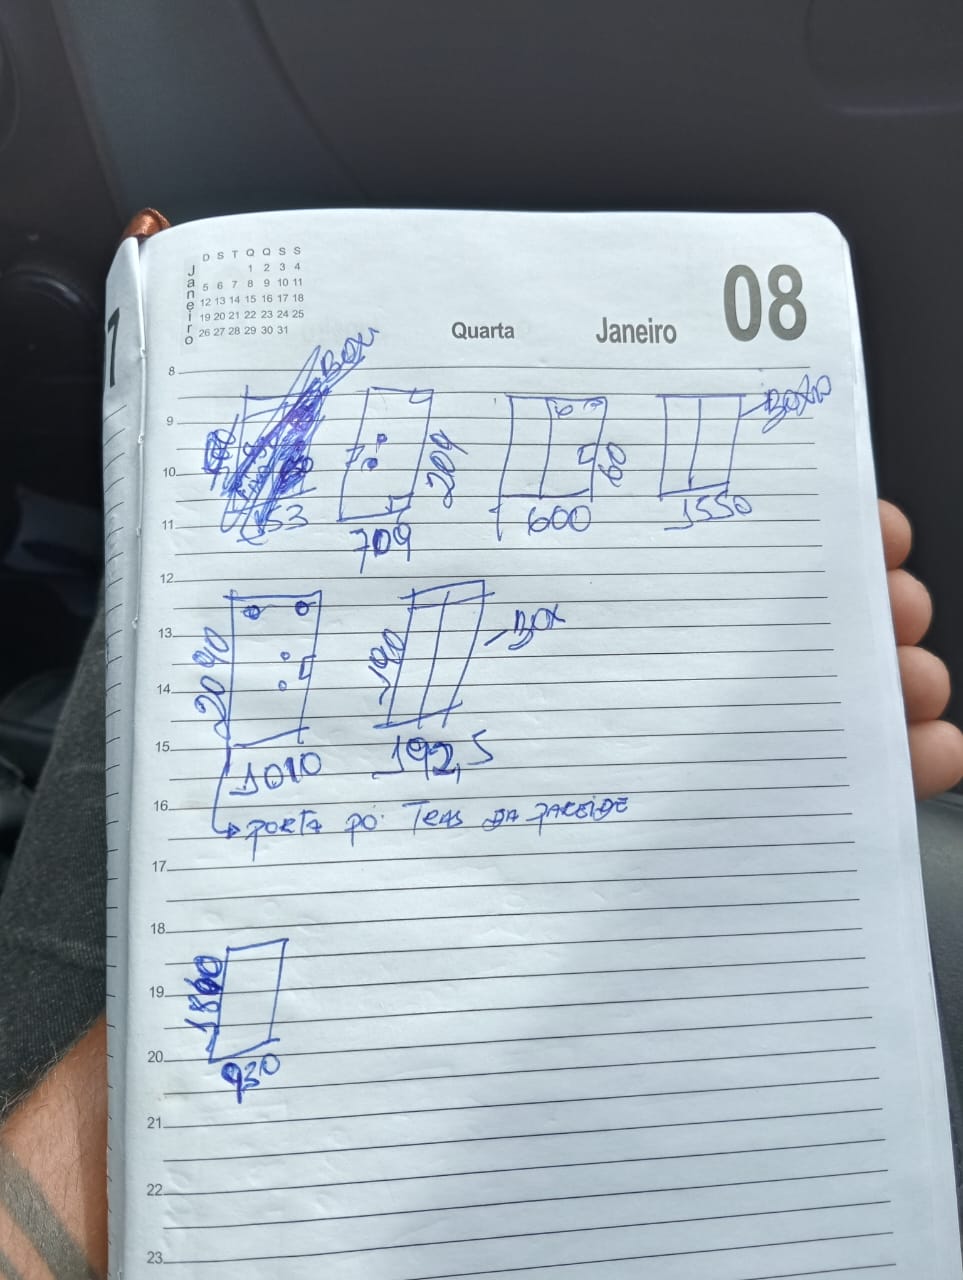 D S T Q Q S S
Janeiro
1 2 3 4
5 6 7 8 9 10 11
12 13 14 15 16 17 18
19 20 21 22 23 24 25
26 27 28 29 30 31
Quarta
Janeiro
08
7
8
BOX
9
209
60
10
153
709
600
1550
11
12
13
2090
190
BOX
14
15
1010
192,5
16
PORTA PO: TRAS DA PAREIDE
17
18
19
1860
20
930
21
22
23